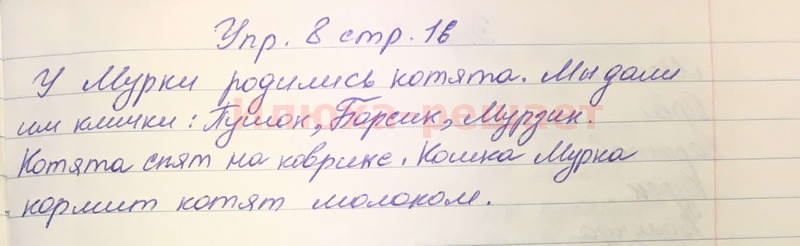 Упр. 8 стр. 16
У Мурки родились котята. Мы дали
им клички: Пушок, Барсик, Мурзик.
Котята спят на коврике. Кошка Мурка
кормит котят молоком.
Илюха-решает